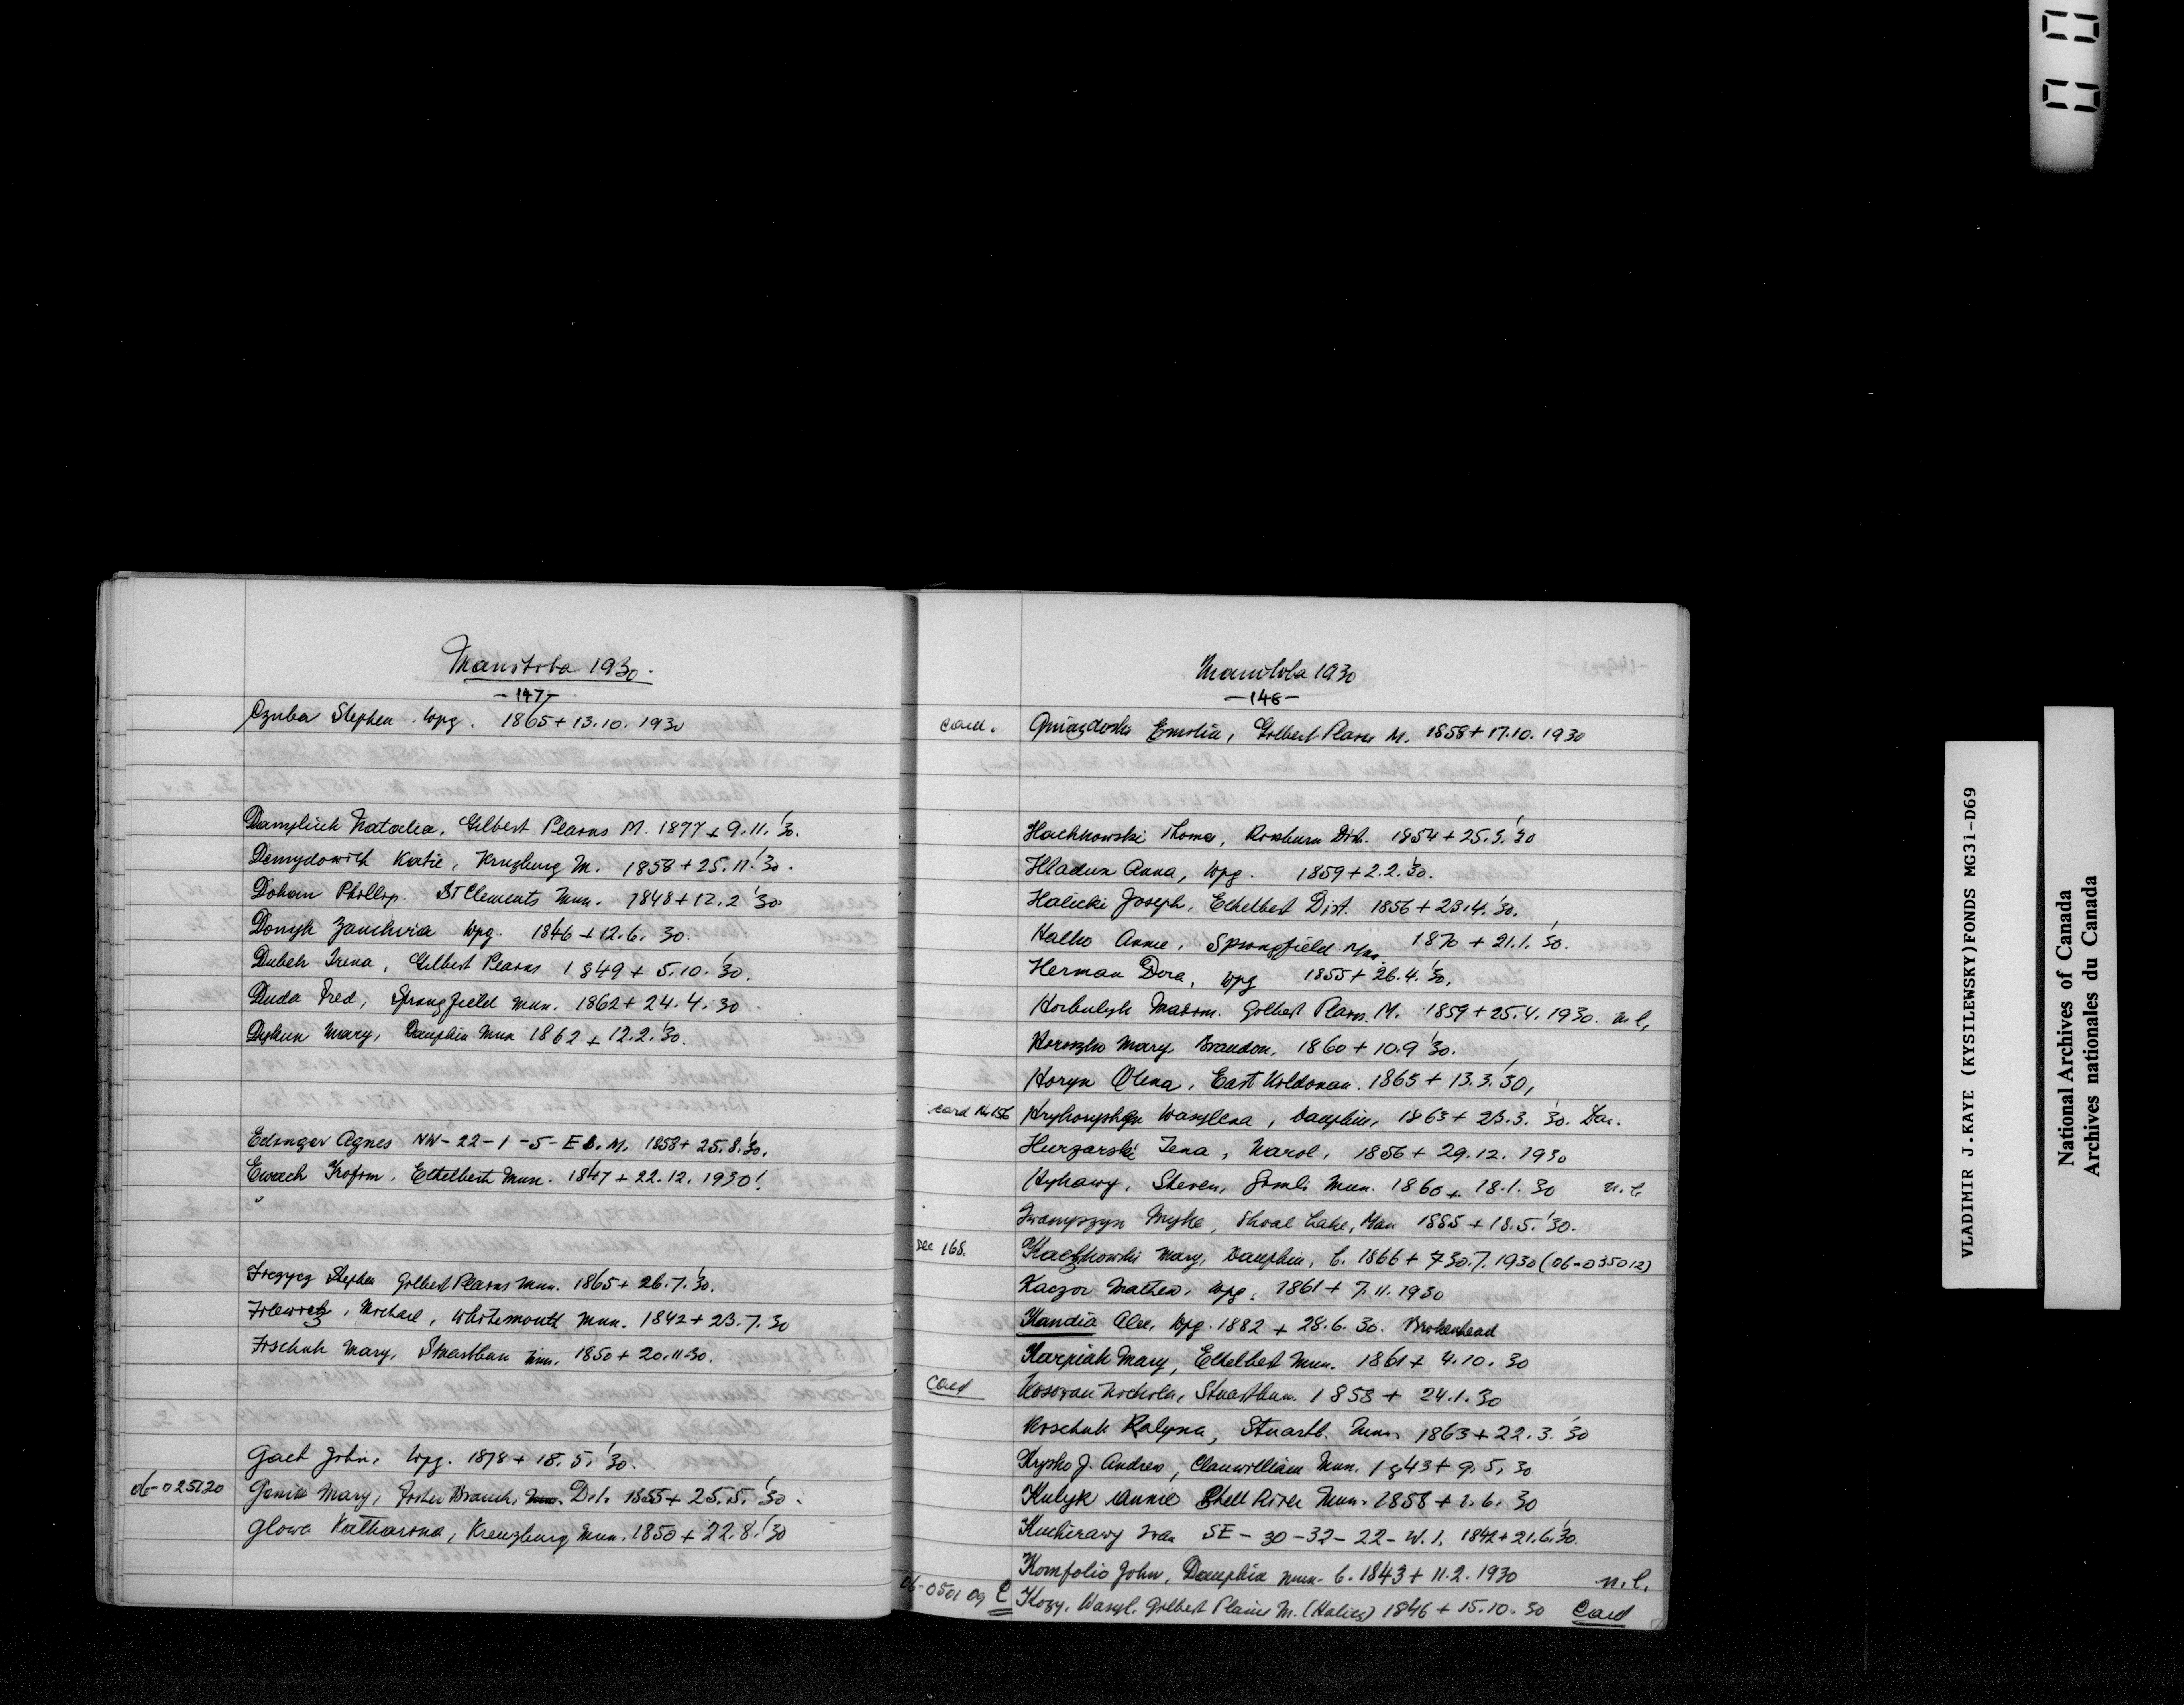 Manitoba 1930.
-147-
Czuba Stephen. Wpg. 1865 + 13.10.1930
Damyliuk Natalia. Gilbert Plains M. 1877 + 9.11.'30.
Demydowich Katie, Kruzburg M. 1858 + 25.11.'30.
Dohan Phillip. St Clements Mun. 1848 + 12.2 '30
Donyk Zauchvia Wpg. 1846 + 12.6. 30.
Dubek Irena, Gilbert Plains 1849 + 5.10.'30.
Duda Fred, Springfield Mun. 1862 + 24.4.'30
Dyhun Mary, Dauphin Mun 1862 + 12.2.'30.
Edinger Agnes NW-22-1-5-E M. 1858 + 25.8.'30.
Ewach Trofim. Ethelbert Mun. 1847 + 22.12.1930!
Stephen Gilbert Plains Mun. 1865 + 26.7.'30.
Michael, Whitemouth Mun. 1842 + 23.7.30
Mary, Stuartburn Mun. 1850 + 20.11.30.
Gach John. Wpg. 1878 + 18.5.'30.
06-025120 Genik Mary, Fisher Branch, Dit. 1855 + 25.5.'30.
Glowa Katharina, Kreuzburg Mun. 1850 + 22.8.'30
Manitoba 1930
-148-
card. Gniazdoski Emilia, Gilbert Plains M. 1858 + 17.10.1930
Hachkowski Thoma, Rossburn Dit. 1854 + 25.3.'30
Hladun Anna, Wpg. 1859 + 2.2.'30.
Halicki Joseph, Ethelbert Dist. 1856 + 23.4.'30.
Halko Annie, Springfield Mn. 1870 + 21.1.'30.
Herman Dora, Wpg 1855 + 26.4.'30.
Horbulyk Maxim. Gilbert Plains. M. 1859 + 25.4.1930. n.l.
Horoszko Mary. Brandon. 1860 + 10.9 '30.
Horyn Olena, East Kildonan. 1865 + 13.3.'30,
card No 156 Wasylena, Dauphin, 1863 + 23.3.'30. Dau.
Hurzarski Tena, Narol, 1856 + 29.12.1930
Hyhawy, Steven, Gimli Mun. 1860 + 18.1.30 n.l.
Iwanyszyn Myke, Shoal Lake, Man 1885 + 18.5.'30.
Dec 168. Kaczkowski Mary, Dauphin, b. 1866 + 30.7.1930 (06-035012)
Kaczor Mathew, Wpg. 1861 + 7.11.1930
Kandia Alex. Wpg. 1882 + 28.6.30. Brokenhead
Karpiak Mary, Ethelbert Mun. 1861 + 4.10.30
Card Kosowan Nichola, Stuartburn. 1858 + 24.1.30
Koschuk Kalyna, Stuartb. Mun. 1863 + 22.3.'30
Krysko J. Andrew, Clanwilliam Mun. 1843 + 9.5.30
Kulyk Annie Shell River Mun. 1858 + 1.6.30
Kucherawy Ivan SE-30-32-22-W.1. 1842 + 21.6.'30.
Komfolio John, Dauphin Mun. b. 1843 + 11.2.1930 n.l.
06-0501 09 C Kozy, Wasyl. Gilbert Plains M. (Halicz) 1846 + 15.10.30 Card
VLADIMIR J.KAYE (KYSILEWSKY)FONDS MG31-D69
National Archives of Canada
Archives nationales du Canada